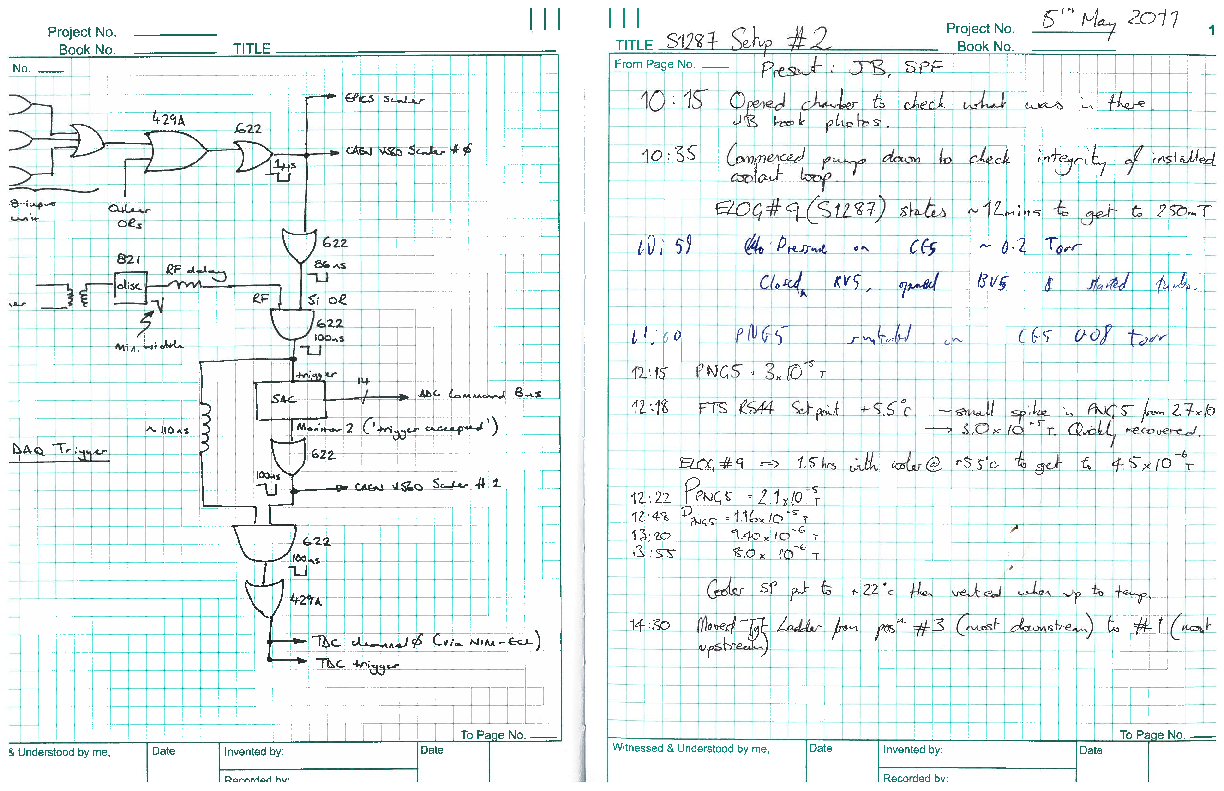 Project No.
Book No.
TITLE
No.
429A
622
EPICS Scaler
CAEN V560 Scaler #0
1μs
8-input
Outer
ORs
622
86ns
821
disc
RF delay
RF
Si OR
622
100ns
Min. width
trigger
SAC
14
ADC Command Bus
Monitor 2 ('trigger accepted')
~110ns
DAQ Trigger
622
100ns
CAEN V560 Scaler #2
622
100ns
429A
TDC channel 0 (via NIM-ECL)
TDC trigger
To Page No.
& Understood by me,
Date
Invented by:
Date
Recorded by:
5th May 2011
Project No.
1
TITLE S1287 Setup #2
Book No.
From Page No.
Present: JB, SPF
10:15 Opened chamber to check what was in there.
JB took photos.
10:35 Commenced pump down to check integrity of installed
coolant loop.
ELOG #9 (S1287) states ~12mins to get to 250mT
10:59 Pressure on CG5 ~ 0.2 Torr
Closed RV5, opened BV5 & started turbo.
11:00 PNG5 on CG5 0.08 Torr
12:15 PNG5 = 3x10⁻⁵ T
12:18 FTS RS44 Setpoint +5.5°C ~small spike in PNG5 from 2.7x10
→ 3.0x10⁻⁵ T. Quickly recovered.
ELOG #9 => 1.5hrs with cooler @ +5.5°C to get to 4.5x10⁻⁶ T
12:22 PPNG5 = 2.1x10⁻⁵ T
12:48 PPNG5 = 1.16x10⁻⁵ T
13:20 9.40x10⁻⁶ T
13:55 8.0x10⁻⁶ T
Cooler SP put to +22°C then vented when up to temp.
14:30 Moved Tgt Ladder from posn #3 (most downstream) to #1 (most
upstream)
To Page No.
Witnessed & Understood by me,
Date
Invented by:
Date
Recorded by: